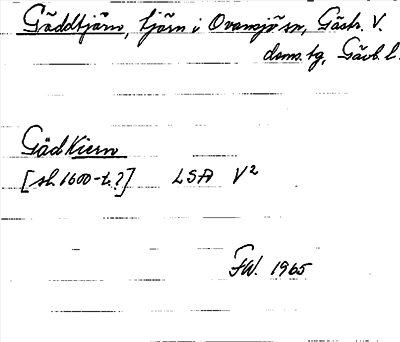 Gäddtjärn, tjärn i Ovansjö sn, Gästr. V.
doms.tg, Gävl. l.
Gäd Kiern
[sl. 1600-t.?] LSA V²
F.W. 1965